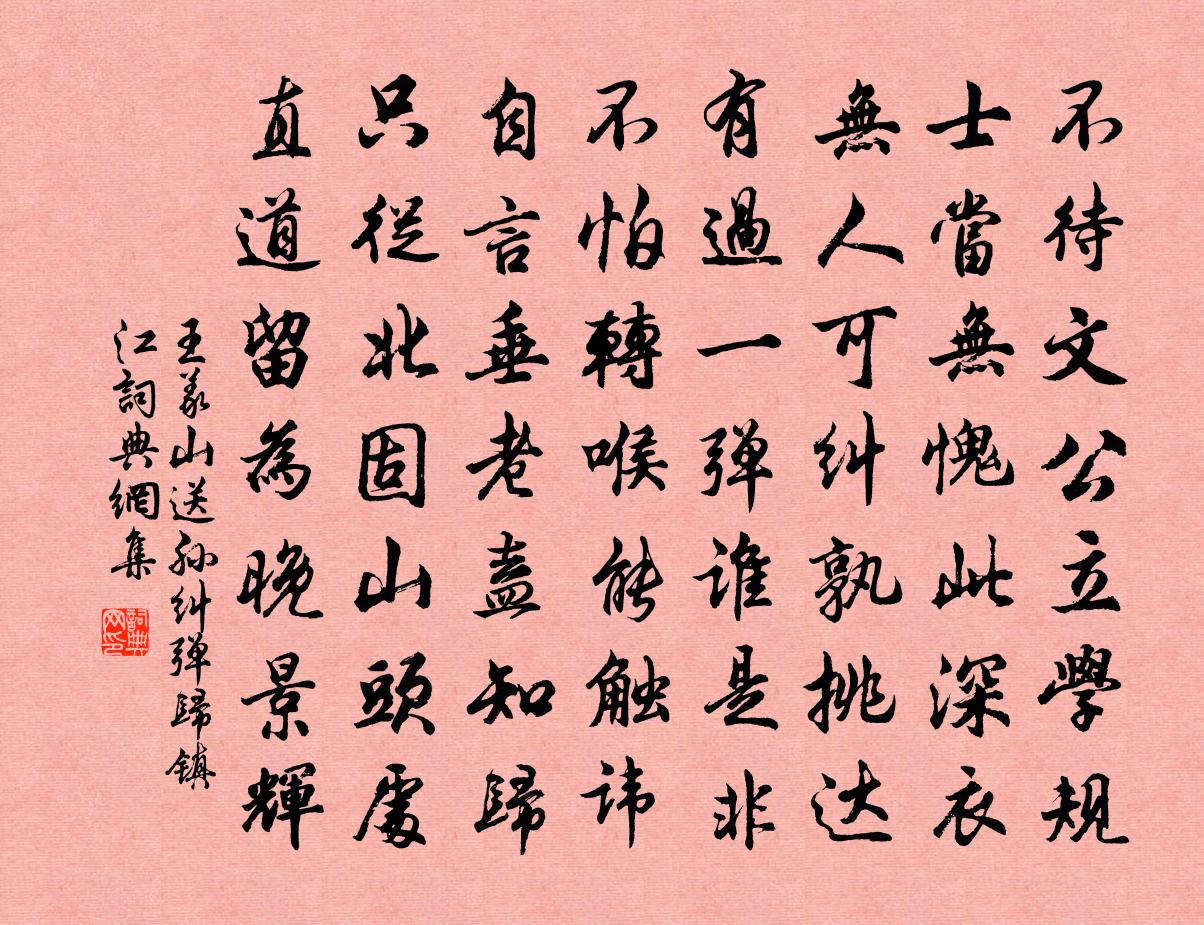 不待文公立學規
士當無愧此深衣
無人可糾孰挑达
有過一弹谁是非
不怕轉喉能触讳
自言垂老盍知歸
只從北固山頭處
直道留為晚景輝
王義山送孙糾弹歸镇
江詞典網集
詞典网印